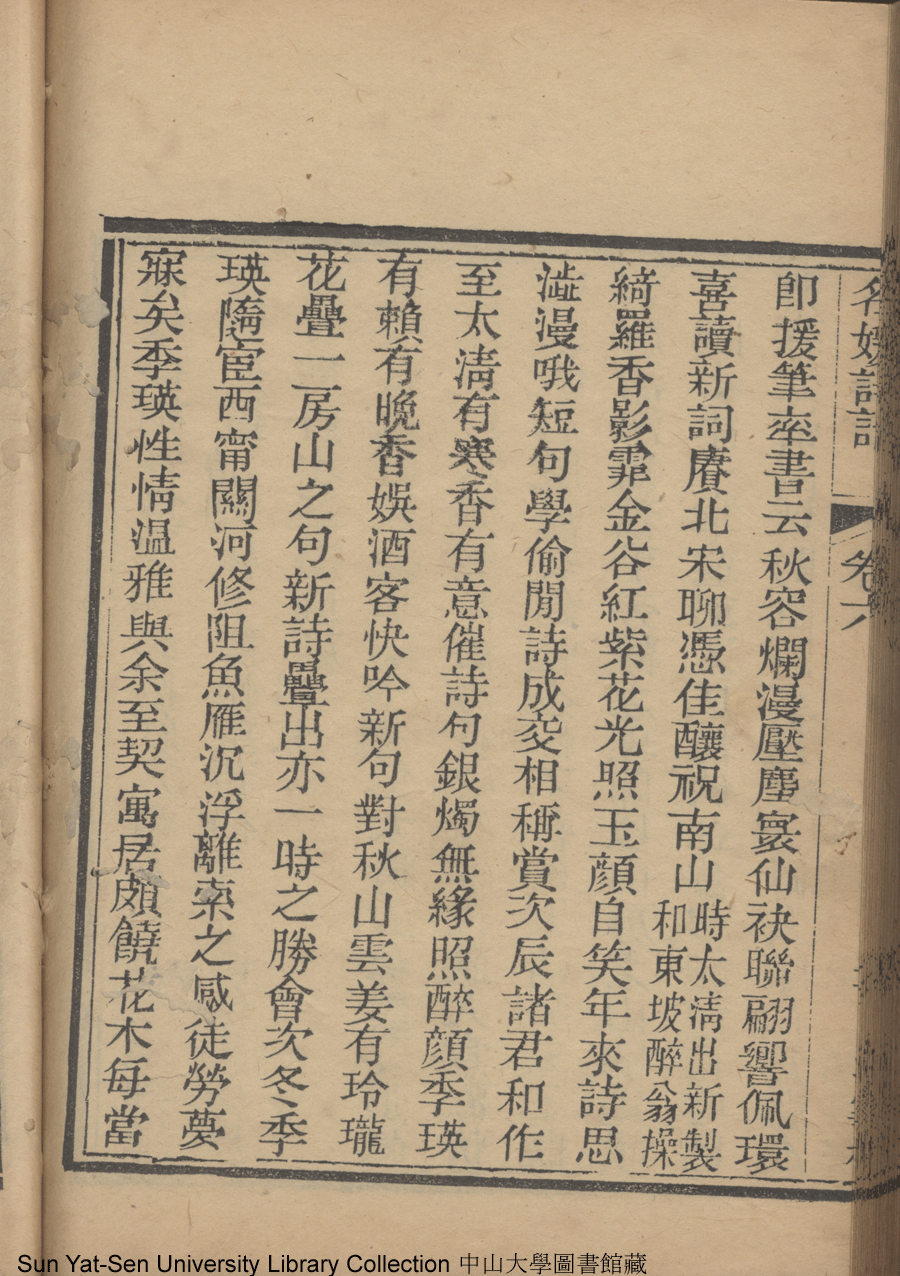 名媛詩話 卷六
卽援筆率書云秋容爛漫壓塵寰仙袂聯翩響佩環
喜讀新詞賡北宋聊憑佳釀祝南山時太淸出新製和東坡醉翁操
綺羅香影霏金谷紅紫花光照玉顏自笑年來詩思
澁漫哦短句學偷閒詩成交相稱賞次辰諸君和作
至太淸有寒香有意催詩句銀燭無緣照醉顏季瑛
有賴有晚香娛酒客快吟新句對秋山雲姜有玲瓏
花疊一房山之句新詩疊出亦一時之勝會次冬季
瑛隨宦西甯關河修阻魚雁沉浮離索之感徒勞夢
寐矣季瑛性情溫雅與余至契寓居頗饒花木每當
Sun Yat-Sen University Library Collection 中山大學圖書館藏